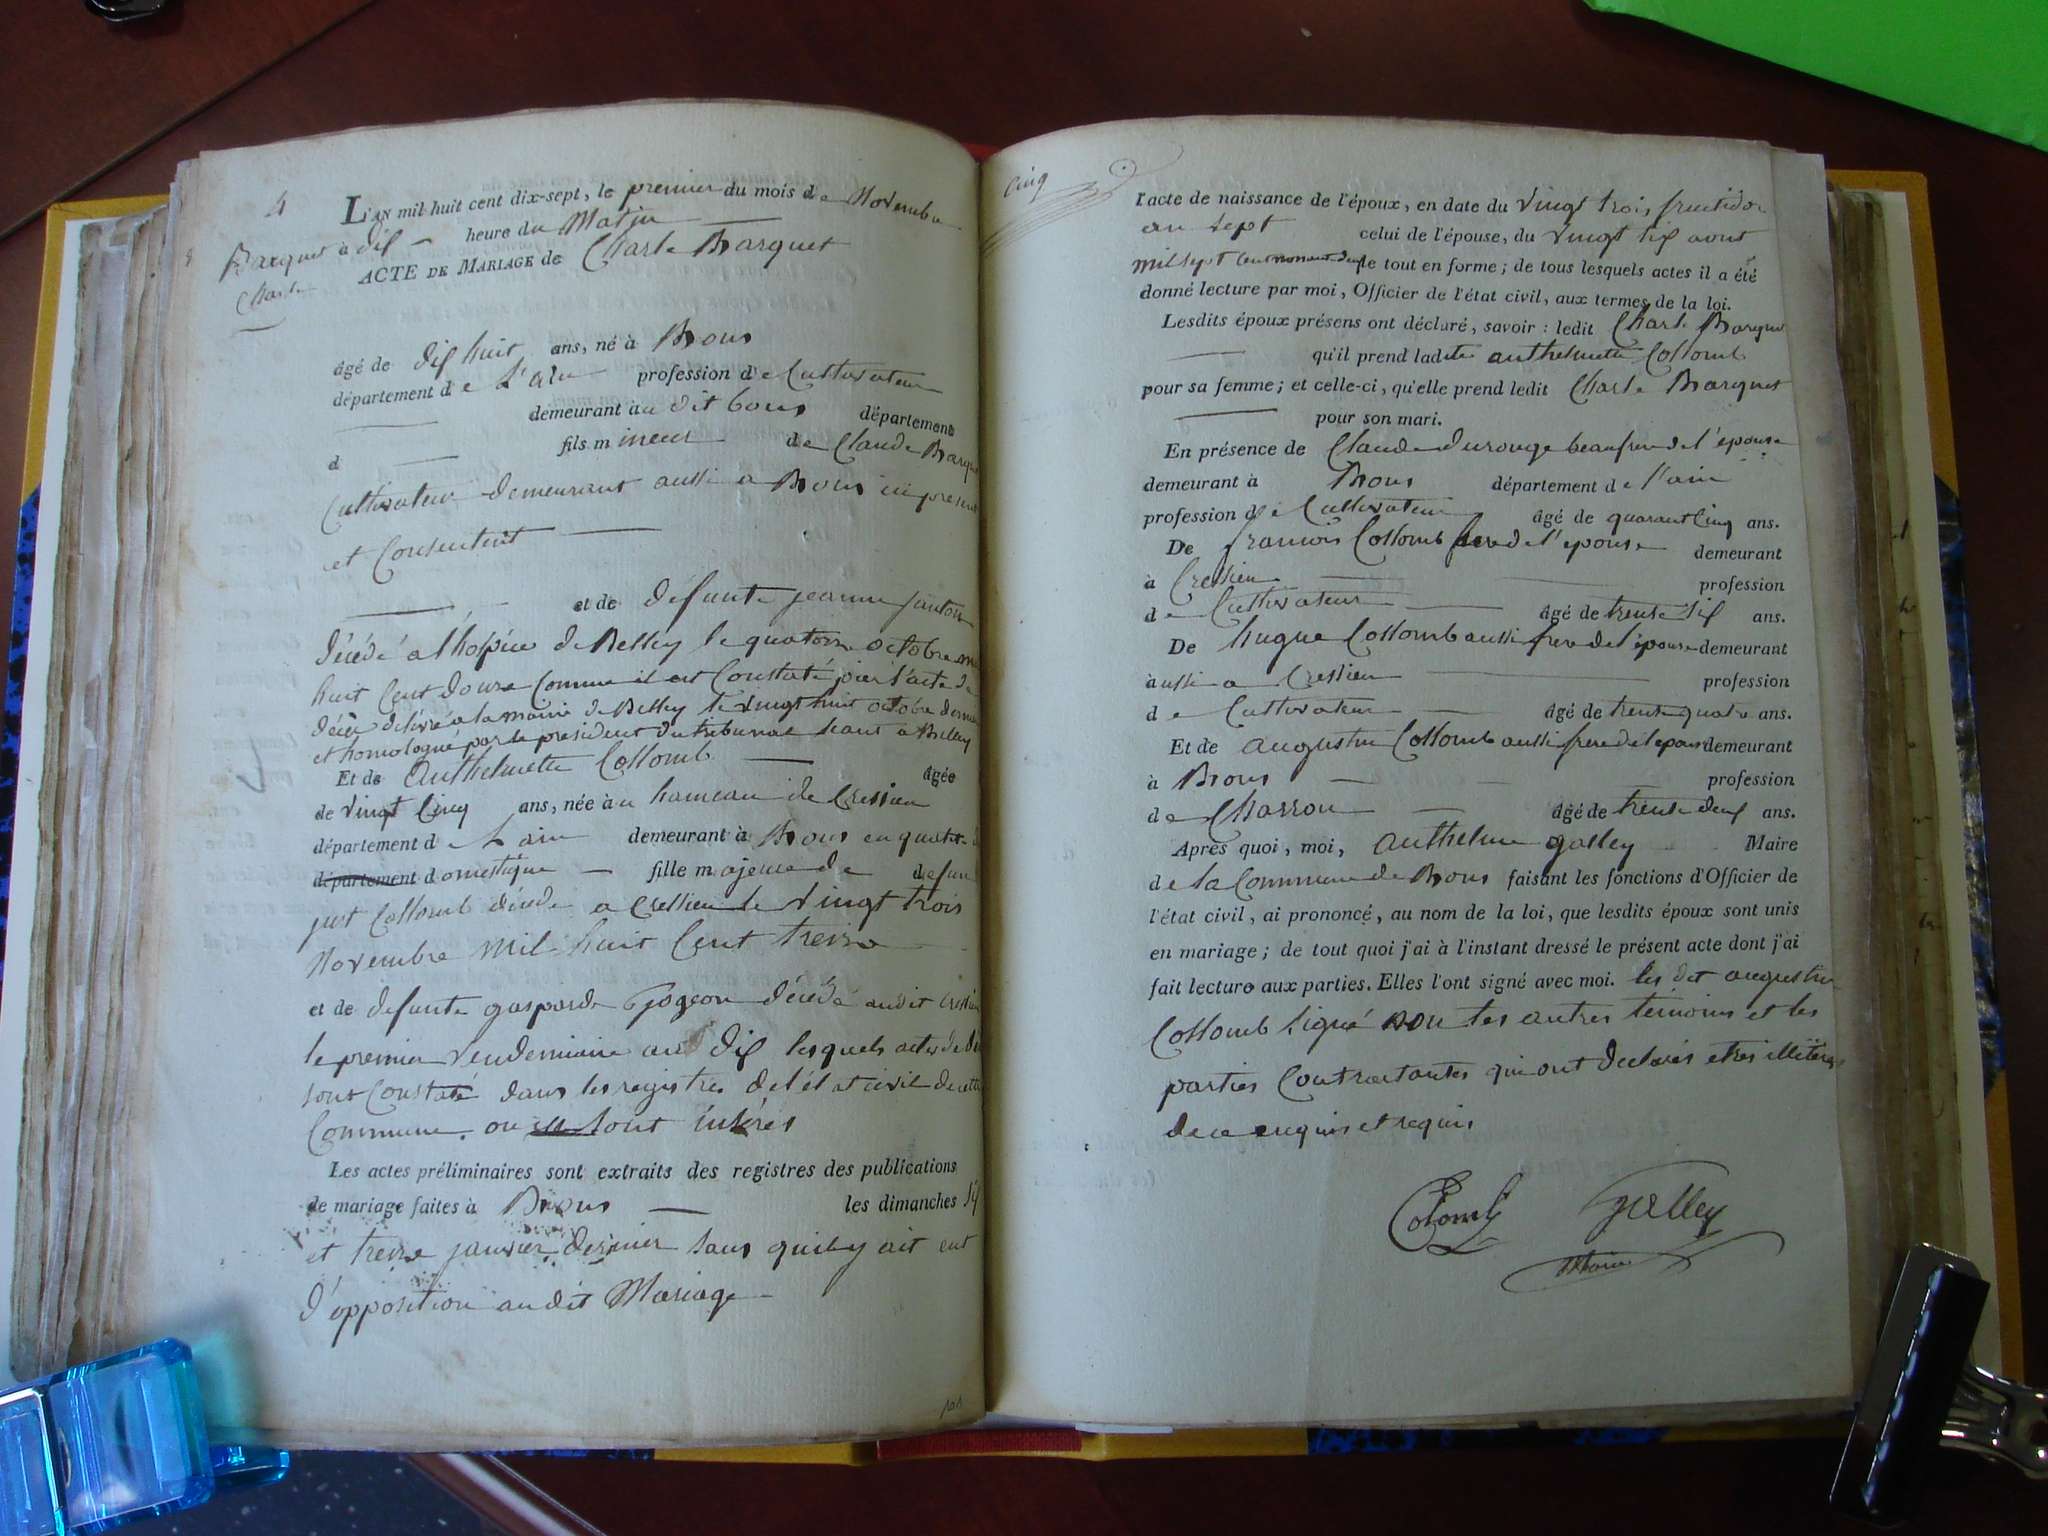 4
L'an mil huit cent dix-sept, le premier du mois de Novembre
Barquet à dix heure du Matin
Charle
ACTE DE MARIAGE de Charle Barquet
âgé de dix huit ans, né à Bons
département de L'ain profession de Cultivateur
demeurant au dit bons département
d fils mineur de Claude Barquet
Cultivateur demeurant aussi a Bons ici present
et Consentent
et de defunte jeanne
décédé a l'hospice de Belley le quatorze octobre mil
huit Cent douze Comme il est Constaté par l'acte de
décès délivré a la mairie de Belley le vingt huit octobre dernier
et homologué par le president du tribunal seant a Belley
Et de Anthelmette Collomb âgée
de vingt Cinq ans, née au hameau de Cressieu
département de L'ain demeurant à Bons en qualité de
département domestique fille majeure de defun
Collomb décédé a Cressieu le vingt trois
Novembre mil huit Cent treize
et de defunte gasparde décédé audit Cressieu
le premier Vendemiaire an dix lesquels actes de
sont Constaté dans les registres de l'état civil de cette
Commune ou sont inserés
Les actes préliminaires sont extraits des registres des publications
de mariage faites à Bons les dimanches six
et treize janvier dernier sans qu'il y ait eut
d'opposition au dit Mariage
101
Cinq
l'acte de naissance de l'époux, en date du vingt trois fructidor
an sept celui de l'épouse, du vingt six aout
mil sept Cent le tout en forme; de tous lesquels actes il a été
donné lecture par moi, Officier de l'état civil, aux termes de la loi.
Lesdits époux présens ont déclaré, savoir: ledit Charle Barquet
qu'il prend ladite anthelmette Collomb
pour sa femme; et celle-ci, qu'elle prend ledit Charle Barquet
pour son mari.
En présence de Claude durouge beaufrere de l'épouse
demeurant à Bons département de l'ain
profession de Cultivateur âgé de quarant Cinq ans.
De francois Collomb frere de l'epouse demeurant
à Cressieu profession
de Cultivateur âgé de trente six ans.
De hugue Collomb aussi frere de l'épouse demeurant
aussi a Cressieu profession
de Cultivateur âgé de trente quatre ans.
Et de augustin Collomb aussi frere de l'epouse demeurant
à Bons profession
de Charron âgé de trente deux ans.
Après quoi, moi, anthelme galley Maire
de la Commune de Bons faisant les fonctions d'Officier de
l'état civil, ai prononcé, au nom de la loi, que lesdits époux sont unis
en mariage; de tout quoi j'ai à l'instant dressé le présent acte dont j'ai
fait lecture aux parties. Elles l'ont signé avec moi. augustin
Collomb signé non les autres temoins et les
parties Contractantes qui ont declarés etres
de ce enquis et requis
Colomb galley
Maire